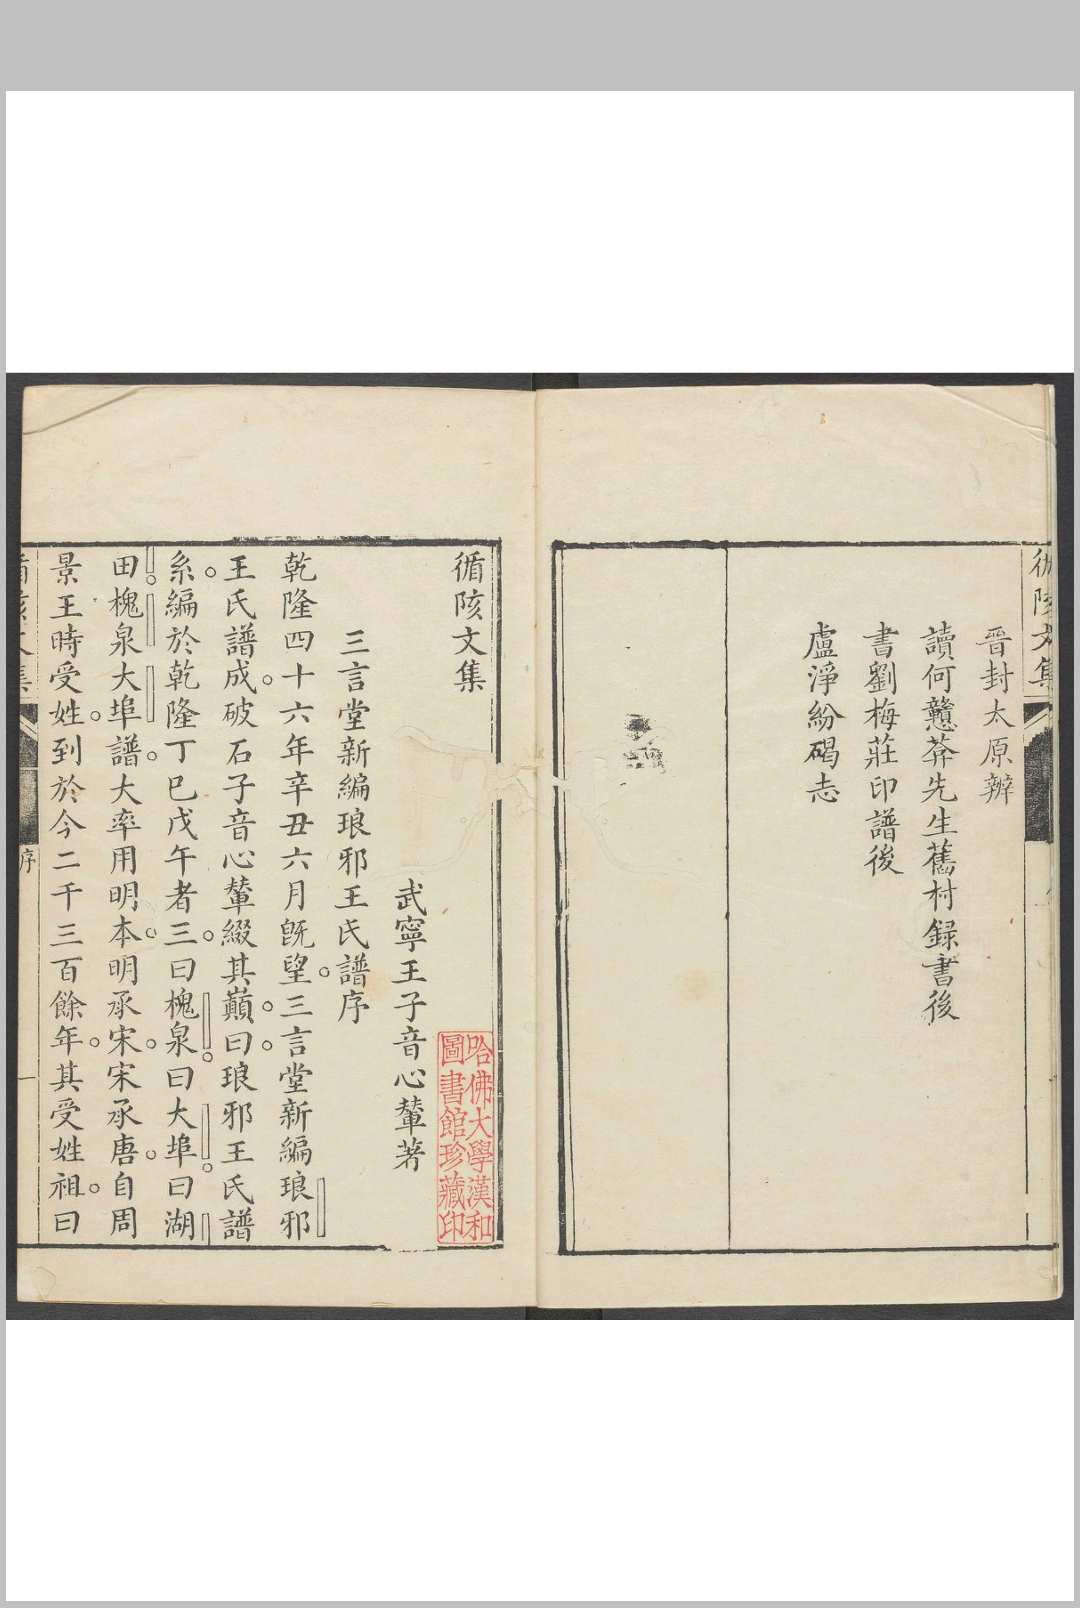 晉封太原辨
讀何戇莽先生舊村録書後
書劉梅莊印譜後
盧淨紛碣志
循陔文集
武寧王子音心輦著
三言堂新編琅邪王氏譜序
乾隆四十六年辛丑六月旣望三言堂新編琅邪
王氏譜成破石子音心輦綴其巓曰琅邪王氏譜
系編於乾隆丁巳戊午者三曰槐泉曰大埠曰湖
田槐泉大埠譜大率用明本明承宋宋承唐自周
景王時受姓到於今二千三百餘年其受姓祖曰
序
一
哈佛大學漢和
圖書館珍藏印